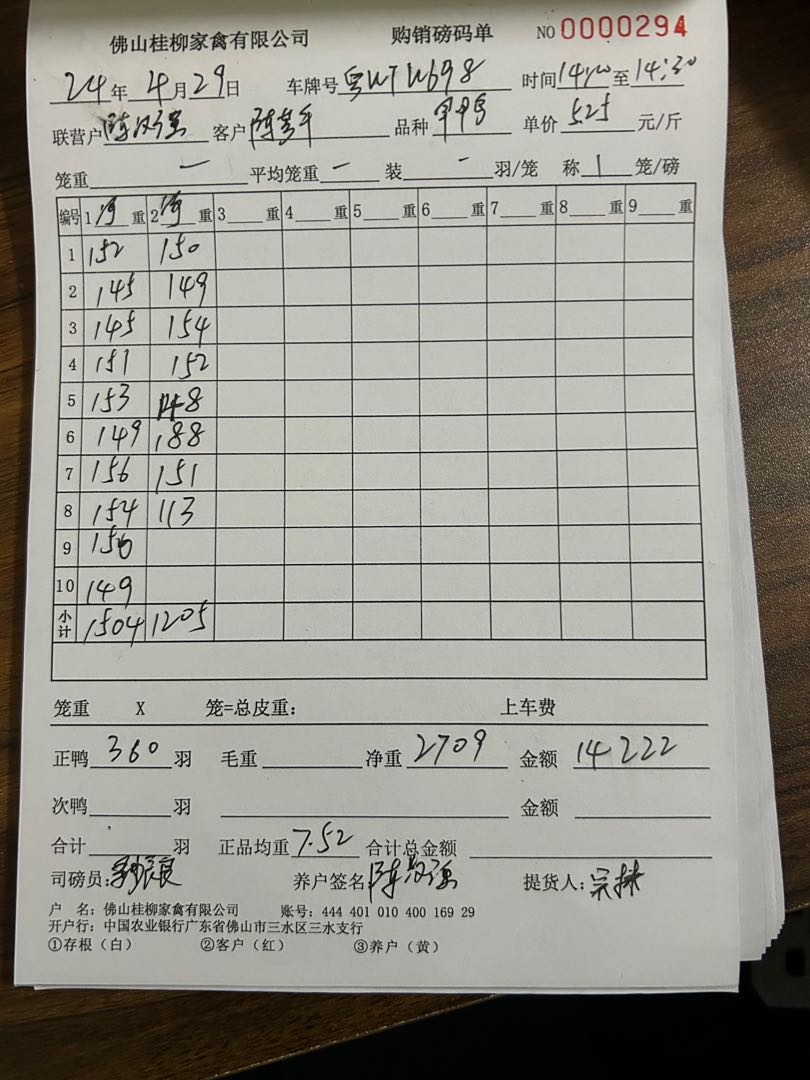 佛山桂柳家禽有限公司 购销磅码单 NO 0000294
24年4月29日 车牌号 时间14:00至14:30
联营户 客户 品种 单价5.25元/斤
笼重 一 平均笼重 一 装 一 羽/笼 称 1 笼/磅
编号 1 净 重 2 净 重 3 重 4 重 5 重 6 重 7 重 8 重 9 重
1 152 150
2 145 149
3 145 154
4 151 152
5 153 148
6 149 188
7 156 151
8 154 113
9 150
10 149
小计 1504 1205
笼重 X 笼=总皮重： 上车费
正鸭 360 羽 毛重 净重 2709 金额 14222
次鸭 羽 金额
合计 羽 正品均重 7.52 合计总金额
司磅员： 养户签名 提货人：
户 名：佛山桂柳家禽有限公司 账号：444 401 010 400 169 29
开户行：中国农业银行广东省佛山市三水区三水支行
①存根（白） ②客户（红） ③养户（黄）